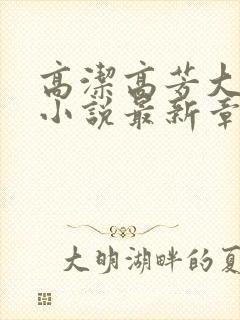 高潔高芳大
小說最新章
大明湖畔的夏